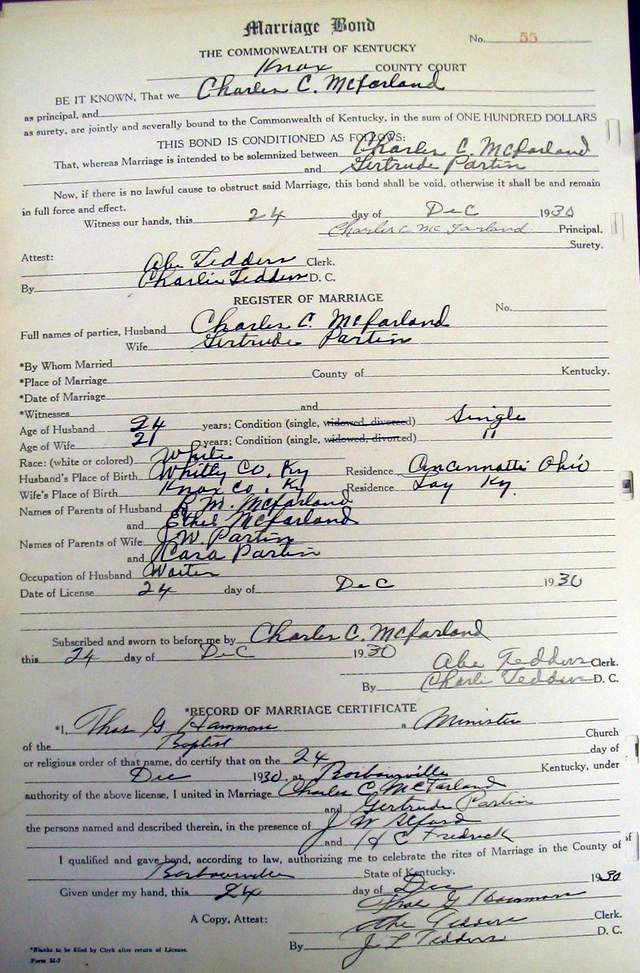 Marriage Bond
No. 55
THE COMMONWEALTH OF KENTUCKY
Knox COUNTY COURT
BE IT KNOWN, That we Charles C. McFarland
as principal, and
as surety, are jointly and severally bound to the Commonwealth of Kentucky, in the sum of ONE HUNDRED DOLLARS
THIS BOND IS CONDITIONED AS FOLLOWS:
That, whereas Marriage is intended to be solemnized between Charles C. McFarland
and Gertrude Partin
Now, if there is no lawful cause to obstruct said Marriage, this bond shall be void, otherwise it shall be and remain
in full force and effect.
Witness our hands, this 24 day of Dec 1930
Charles C McFarland Principal.
Surety.
Attest:
Abe Tedders Clerk.
By Charlie Tedders D. C.
REGISTER OF MARRIAGE
No.
Full names of parties, Husband Charles C. McFarland
Wife Gertrude Partin
*By Whom Married
*Place of Marriage County of Kentucky.
*Date of Marriage
*Witnesses and
Age of Husband 24 years; Condition (single, widowed, divorced) Single
Age of Wife 21 years; Condition (single, widowed, divorced) "
Race: (white or colored) White
Husband's Place of Birth Whitly Co, Ky Residence Cincinnatti Ohio
Wife's Place of Birth Knox Co, Ky Residence Lay Ky.
Names of Parents of Husband M. McFarland
and Ethel McFarland
Names of Parents of Wife J W Partin
and Cara Partin
Occupation of Husband Waiter
Date of License 24 day of Dec 1930
Subscribed and sworn to before me by Charles C. McFarland
this 24 day of Dec 1930
Abe Tedders Clerk.
By Charli Tedders D. C.
*RECORD OF MARRIAGE CERTIFICATE
*I, Thos G Hammons a Minister
of the Baptist Church
or religious order of that name, do certify that on the 24 day of
Dec 1930, at Barbourville Kentucky, under
authority of the above license, I united in Marriage Charles C. McFarland
and Gertrude Partin
the persons named and described therein, in the presence of J W Alford
and H C Fredrick
I qualified and gave bond, according to law, authorizing me to celebrate the rites of Marriage in the County of
Barbourville State of Kentucky.
Given under my hand, this 24 day of Dec 1930
Thos G Hammons
A Copy, Attest: Abe Tedders Clerk.
By J L Tedders D. C.
*Blanks to be filled by Clerk after return of License.
Form M-7